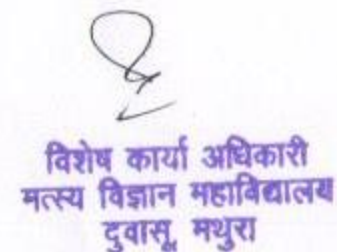 विशेष कार्या अधिकारी
मत्स्य विज्ञान महाविद्यालय
दुवासू, मथुरा